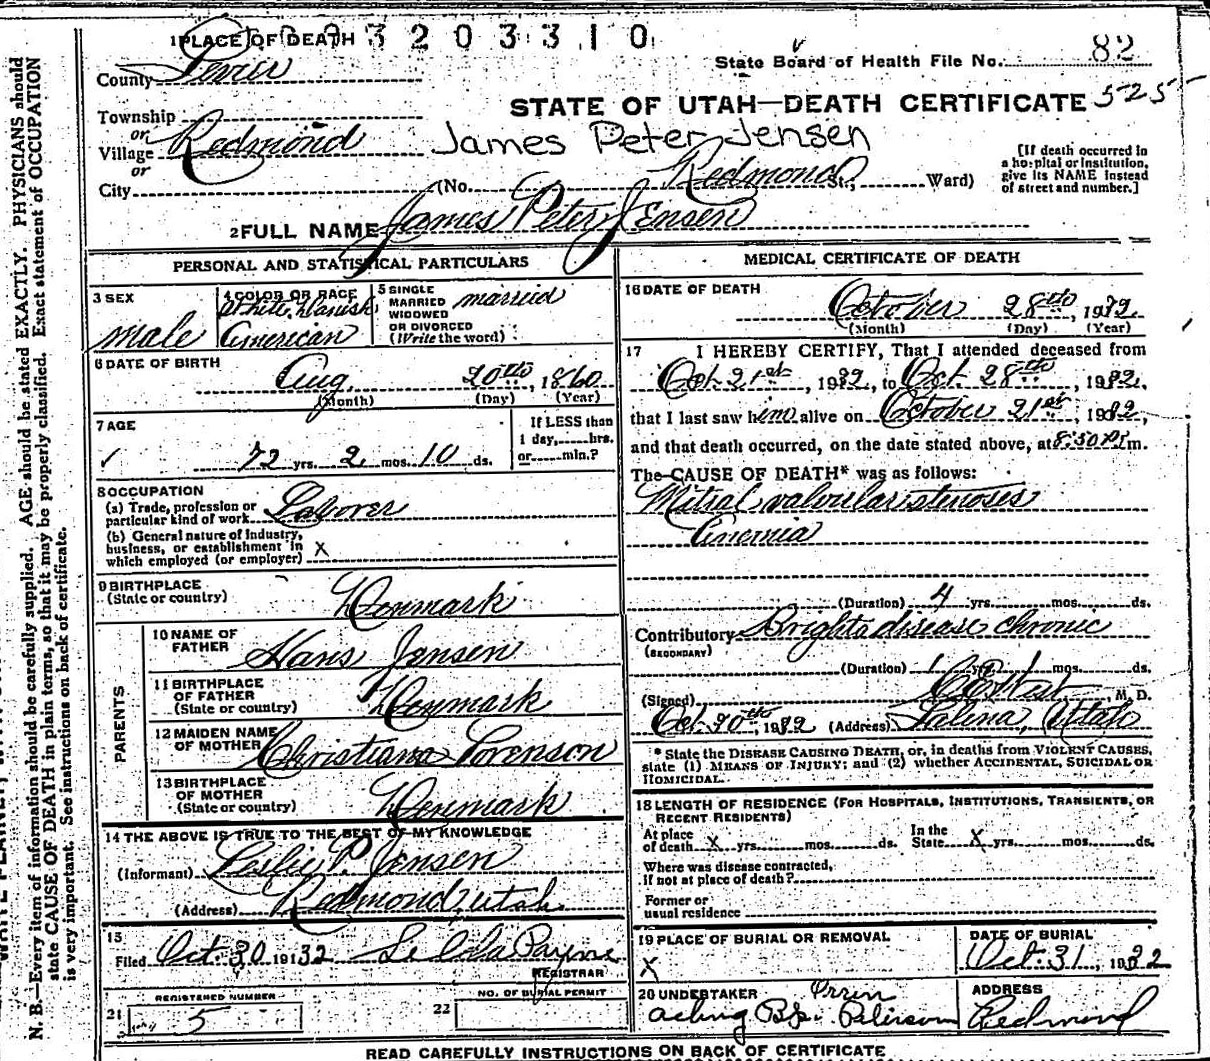 3 2 0 3 3 1 0
1 PLACE OF DEATH
State Board of Health File No. 82
County Sevier
STATE OF UTAH—DEATH CERTIFICATE 525
Township
or
Village Redmond
James Peter Jensen
or
City (No. Redmond St., Ward)
[If death occurred in
a hospital or institution,
give its NAME instead
of street and number.]
2 FULL NAME James Peter Jensen
PERSONAL AND STATISTICAL PARTICULARS
3 SEX
male
4 COLOR OR RACE
White Danish
American
5 SINGLE
MARRIED
WIDOWED
OR DIVORCED
(Write the word)
married
6 DATE OF BIRTH
Aug. 20th, 1860
(Month) (Day) (Year)
7 AGE
✓ 72 yrs. 2 mos. 10 ds.
If LESS than
1 day, hrs.
or min.?
8 OCCUPATION
(a) Trade, profession or
particular kind of work Laborer
(b) General nature of industry,
business, or establishment in
which employed (or employer) X
9 BIRTHPLACE
(State or country) Denmark
PARENTS
10 NAME OF
FATHER Hans Jensen
11 BIRTHPLACE
OF FATHER
(State or country) Denmark
12 MAIDEN NAME
OF MOTHER Christiana Sorenson
13 BIRTHPLACE
OF MOTHER
(State or country) Denmark
14 THE ABOVE IS TRUE TO THE BEST OF MY KNOWLEDGE
(Informant) Leslie P. Jensen
(Address) Redmond, Utah
15
Filed Oct. 30 1932 Payne
REGISTRAR
REGISTERED NUMBER
21 5
NO. OF BURIAL PERMIT
22
MEDICAL CERTIFICATE OF DEATH
16 DATE OF DEATH
October 28th, 1932
(Month) (Day) (Year)
17 I HEREBY CERTIFY, That I attended deceased from
Oct. 21st, 1932, to Oct. 28th, 1932,
that I last saw him alive on October 21st, 1932,
and that death occurred, on the date stated above, at 8:30 P. m.
The CAUSE OF DEATH* was as follows:
Mitral valvular stenoses
Anemia
(Duration) 4 yrs. mos. ds.
Contributory Brights disease chronic
(SECONDARY)
(Duration) 1 yrs. 1 mos. ds.
(Signed) West M. D.
Oct. 30th, 1932 (Address) Salina, Utah
* State the DISEASE CAUSING DEATH, or, in deaths from VIOLENT CAUSES,
state (1) MEANS OF INJURY; and (2) whether ACCIDENTAL, SUICIDAL OR
HOMICIDAL.
18 LENGTH OF RESIDENCE (FOR HOSPITALS, INSTITUTIONS, TRANSIENTS, OR
RECENT RESIDENTS)
At place
of death X yrs. mos. ds.
In the
State X yrs. mos. ds.
Where was disease contracted,
if not at place of death?
Former or
usual residence
19 PLACE OF BURIAL OR REMOVAL
X
DATE OF BURIAL
Oct. 31, 1932
20 UNDERTAKER Orrin
acting Bp. Peterson
ADDRESS
Redmond
READ CAREFULLY INSTRUCTIONS ON BACK OF CERTIFICATE
N. B.—Every item of information should be carefully supplied. AGE should be stated EXACTLY. PHYSICIANS should
state CAUSE OF DEATH in plain terms, so that it may be properly classified. Exact statement of OCCUPATION
is very important. See instructions on back of certificate.